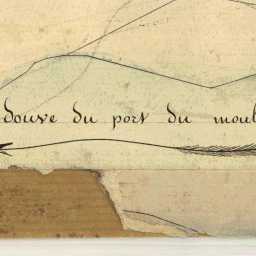 douve du port du moul